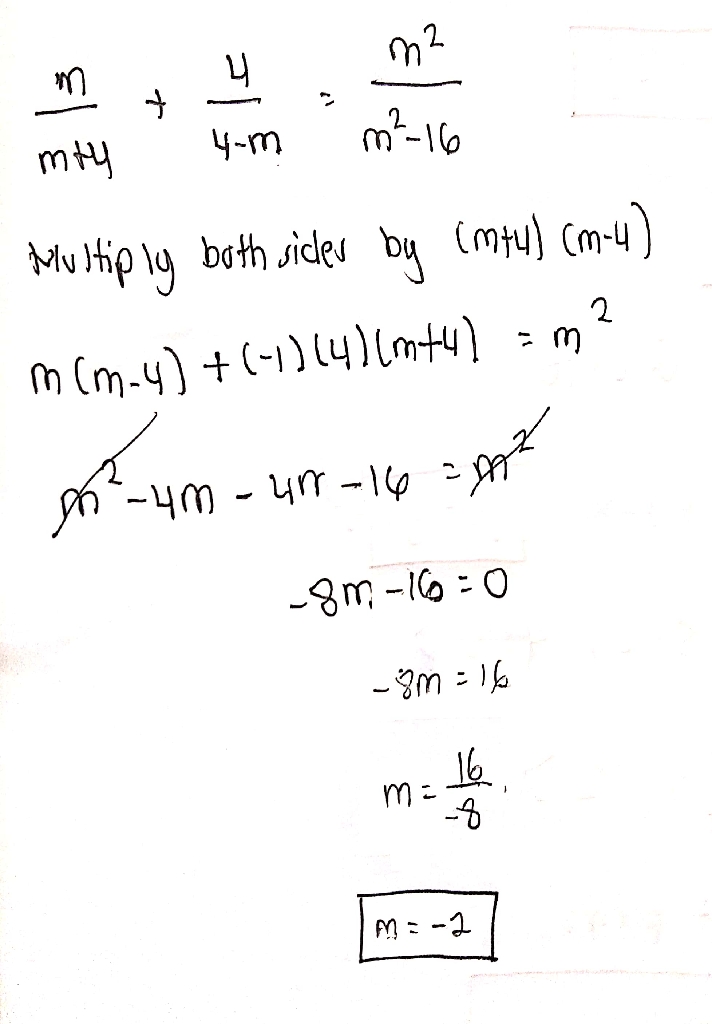 m/(m+4) + 4/(4-m) = m²/(m²-16)
Multiply both sides by (m+4) (m-4)
m(m-4) + (-1)(4)(m+4) = m²
m² - 4m - 4m - 16 = m²
-8m - 16 = 0
-8m = 16
m = 16/-8
m = -2